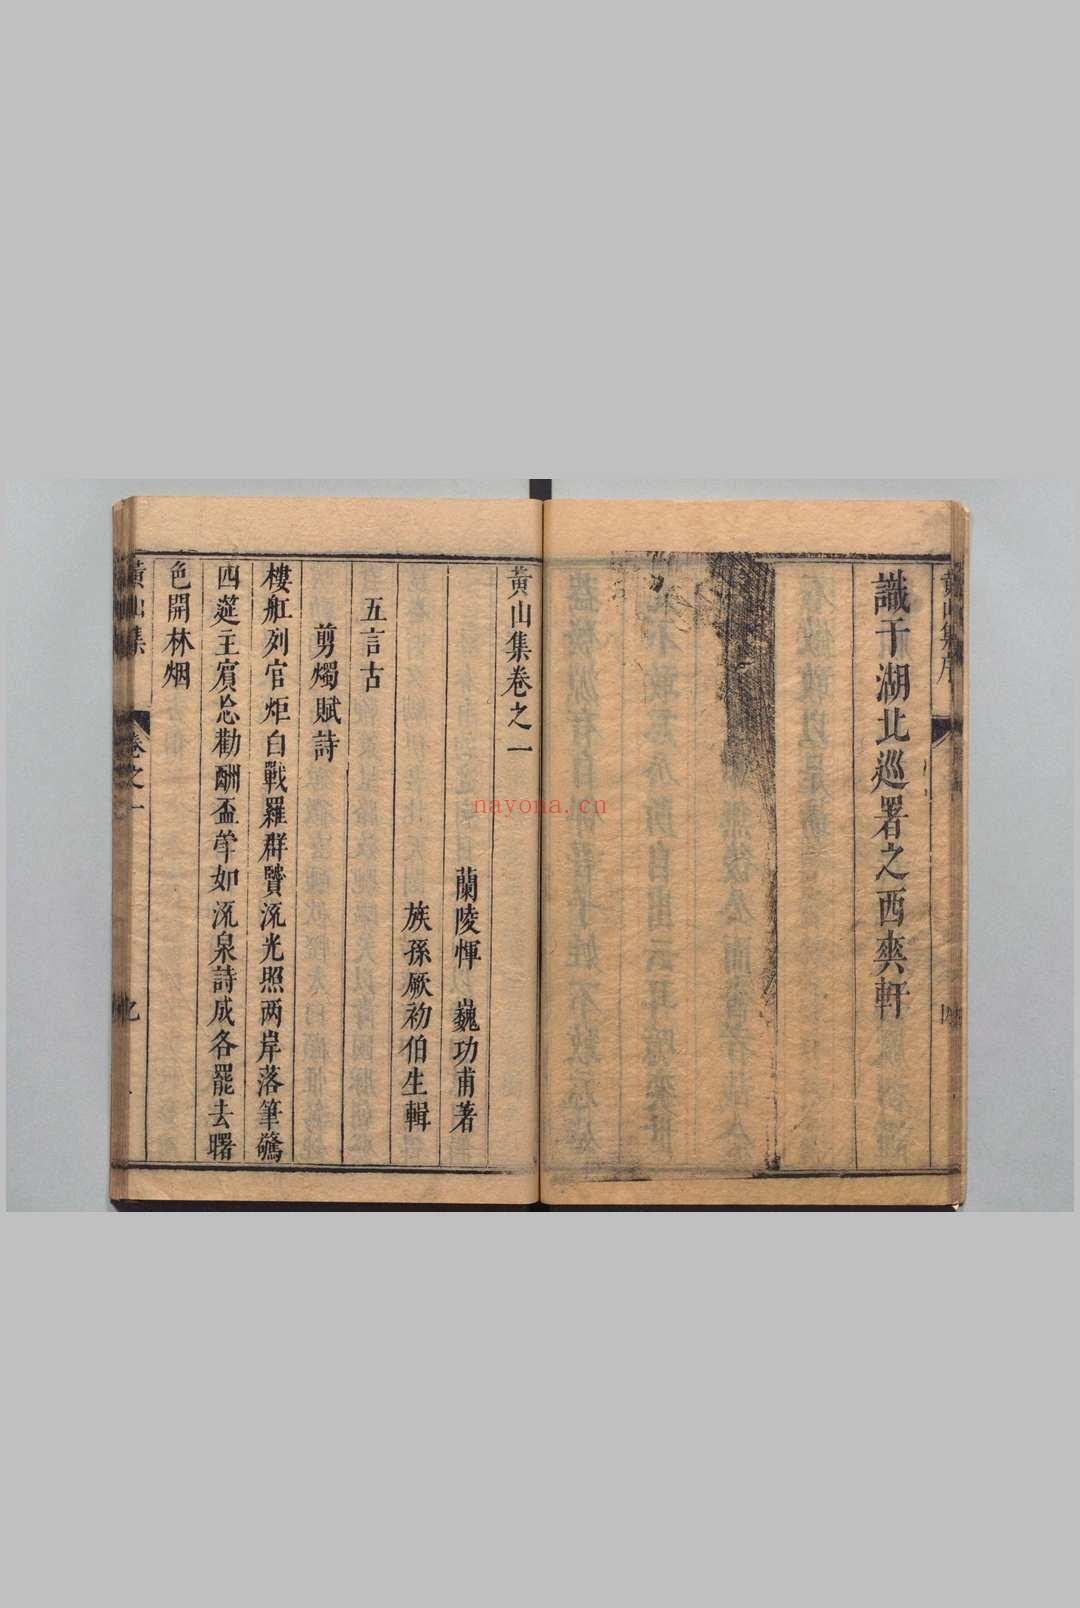 黃山集序
識于湖北巡署之西爽軒
四
黃山集卷之一
蘭陵惲 巍功甫著
族孫厥初伯生輯
五言古
剪燭賦詩
樓舡列官炬白戰羅群賢流光照兩岸落筆驚
四筵主賓忩勸酬盃斝如流泉詩成各罷去曙
色開林烟
黃山集
卷之一
nayona.cn